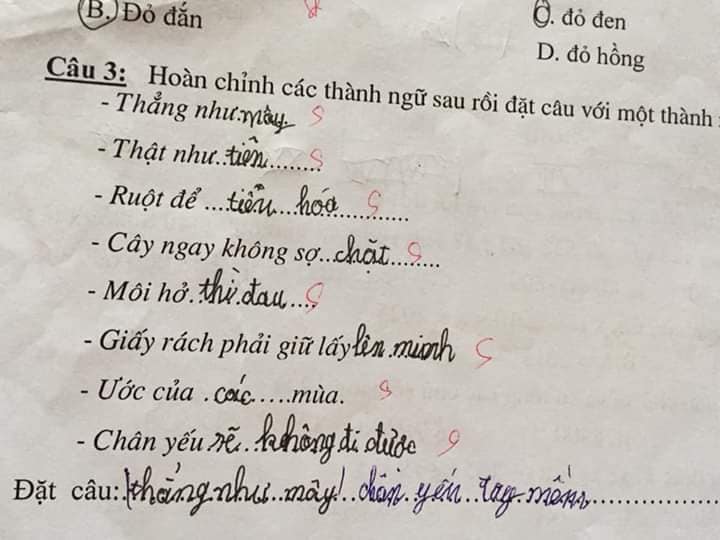 B. Đỏ đắn
C. đỏ đen
D. đỏ hồng
Câu 3: Hoàn chỉnh các thành ngữ sau rồi đặt câu với một thành
- Thẳng như mây S
- Thật như..tiền........ S
- Ruột để ...tiểu...hoá......... S
- Cây ngay không sợ..chặt....... S
- Môi hở.thì.đau.... S
- Giấy rách phải giữ lấy lên mionh S
- Ước của .các.....mùa. S
- Chân yếu sẽ..không đi được S
Đặt câu:.thẳng như...mây!..chân.yếu..tay mềm................